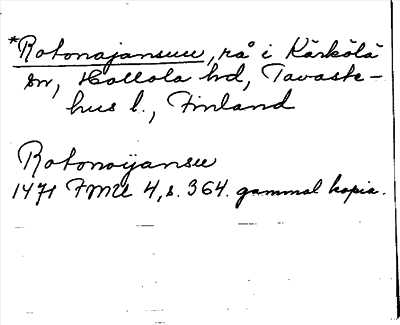 *Rotonajansuu, rå i Kärkölä
sn, Hollola hd, Tavaste-
hus l., Finland
Rotonoÿansu
1471 FMU 4, s. 364. gammal kopia.